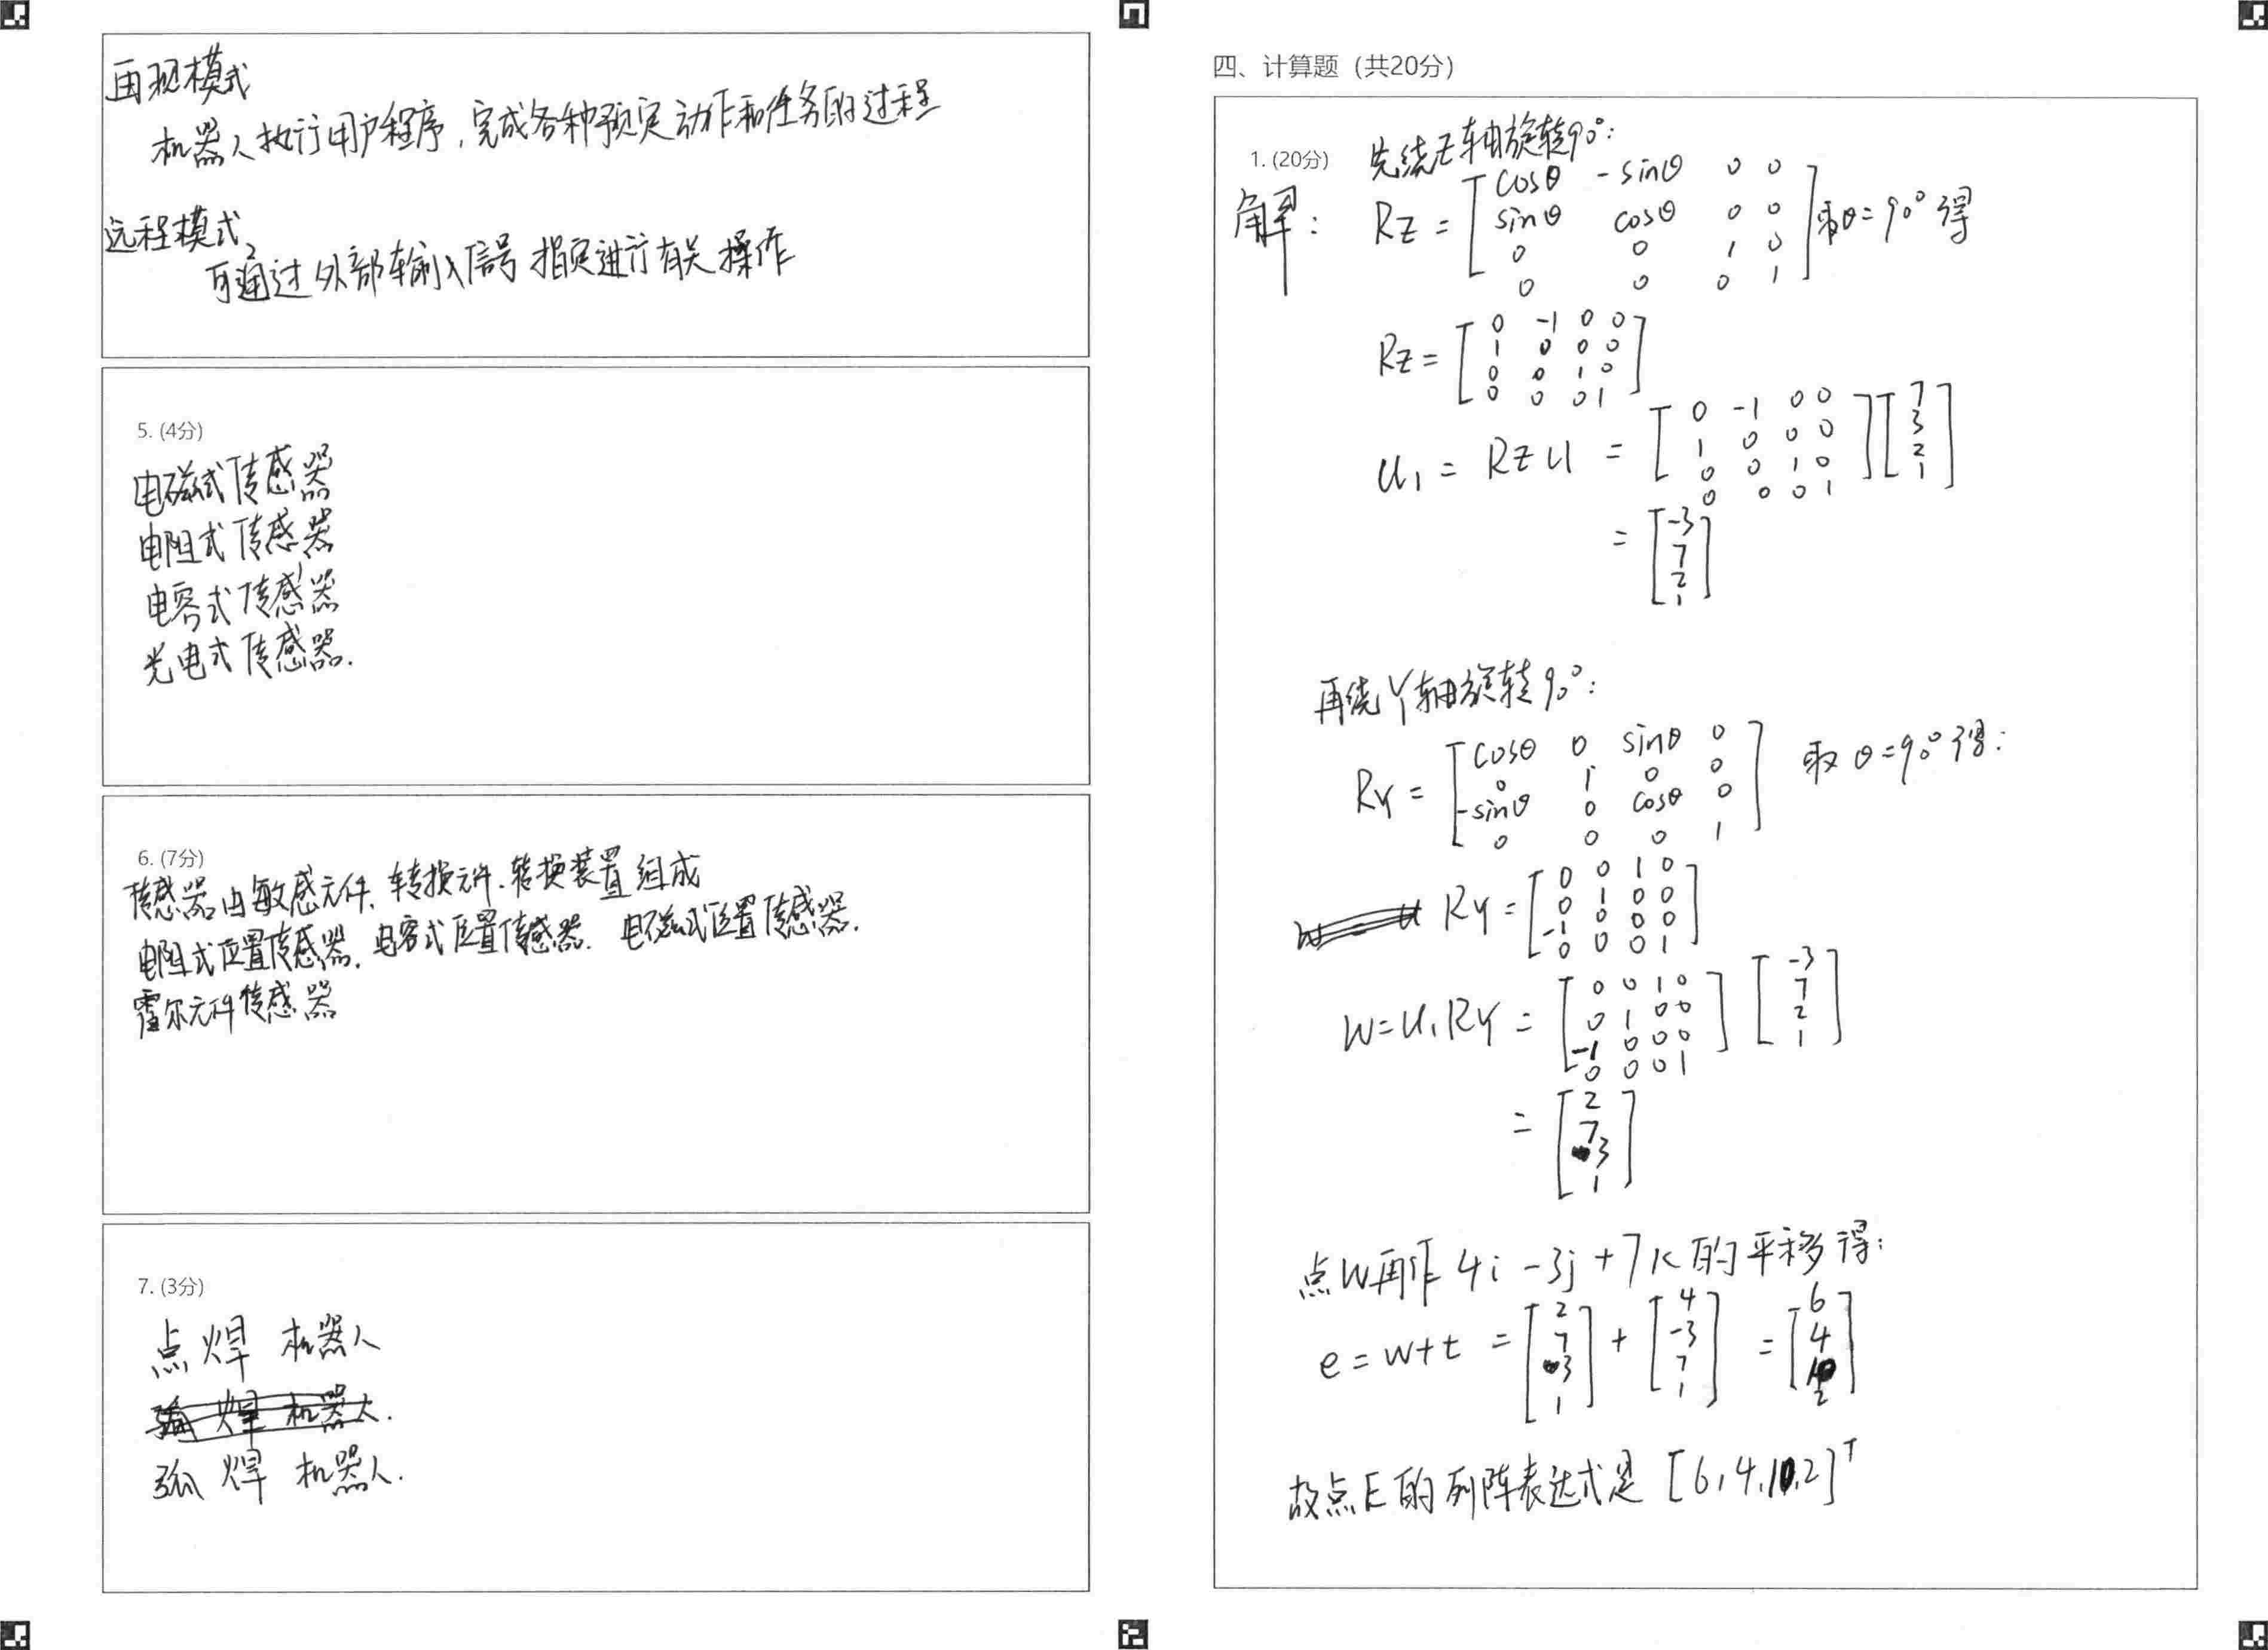 再现模式
机器人执行用户程序,完成各种预定动作和任务的过程
远程模式
可通过外部输入信号指定进行有关操作
5. (4分)
电磁式传感器
电阻式传感器
电容式传感器
光电式传感器.
6. (7分)
传感器由敏感元件、转换元件、转换装置组成
电阻式位置传感器. 电容式位置传感器. 电磁式位置传感器.
霍尔元件传感器
7. (3分)
点焊机器人
弧焊机器人.
四、计算题(共20分)
1. (20分) 先绕Z轴旋转90°:
解:
RZ = [cosθ -sinθ 0 0
sinθ cosθ 0 0
0 0 1 0
0 0 0 1] 取θ=90°得
RZ = [0 -1 0 0
1 0 0 0
0 0 1 0
0 0 0 1]
U₁ = RZ U = [0 -1 0 0
1 0 0 0
0 0 1 0
0 0 0 1] [7
3
2
1]
= [-3
7
2
1]
再绕Y轴旋转90°:
RY = [cosθ 0 sinθ 0
0 1 0 0
-sinθ 0 cosθ 0
0 0 0 1] 取θ=90°得:
RY = [0 0 1 0
0 1 0 0
-1 0 0 0
0 0 0 1]
W=U₁RY = [0 0 1 0
0 1 0 0
-1 0 0 0
0 0 0 1] [-3
7
2
1]
= [2
7
3
1]
点W再作4i-3j+7k的平移得:
e=w+t = [2
7
3
1] + [4
-3
7
1] = [6
4
10
2]
故点E的列阵表达式是 [6,4,10,2]ᵀ